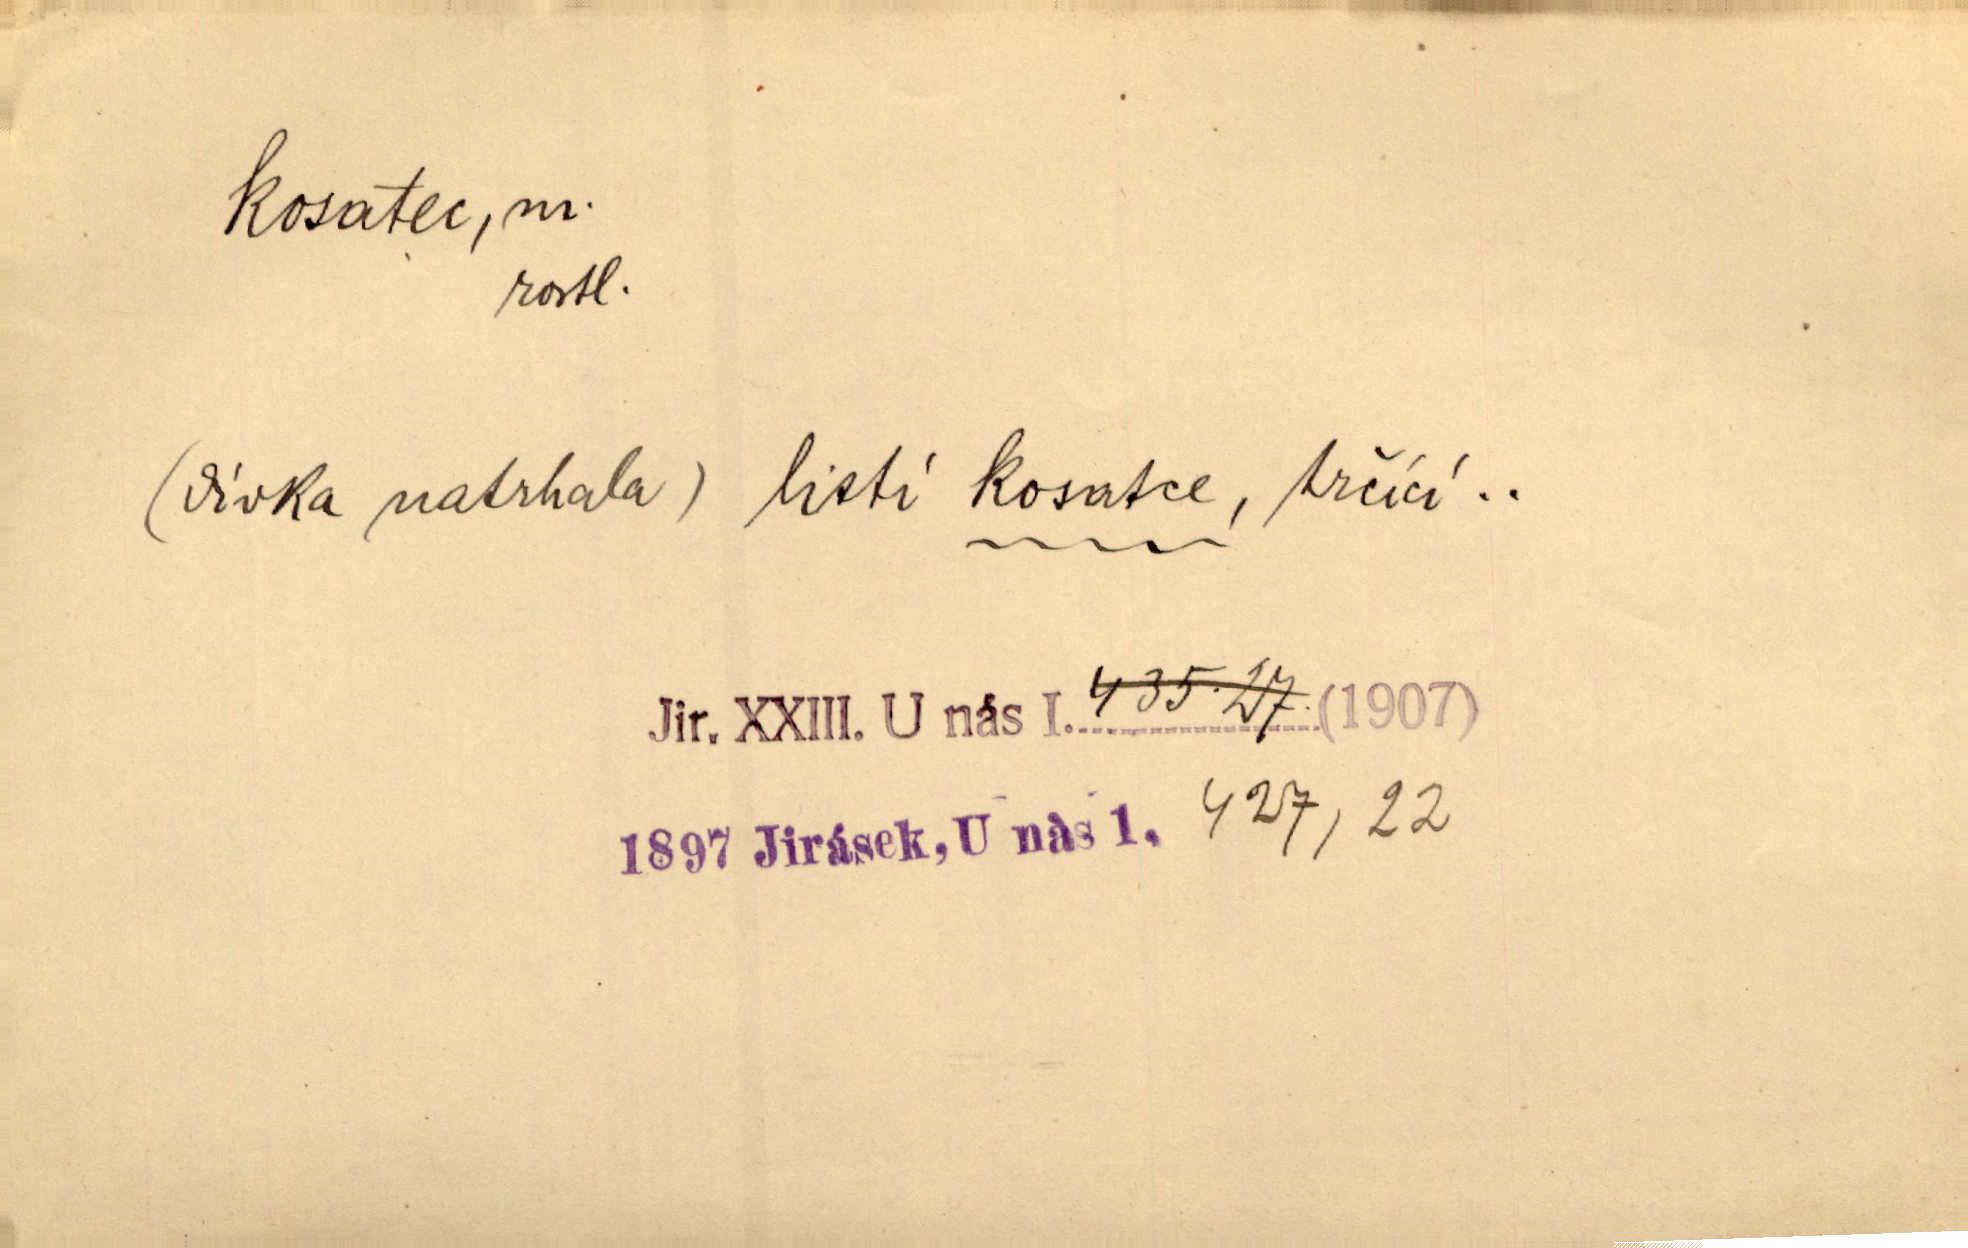 kosatec, m.
rostl.
(dívka natrhala) listí kosatce, trčící..
Jir. XXIII. U nás I. 435.27. (1907)
1897 Jirásek, U nás 1. 427, 22